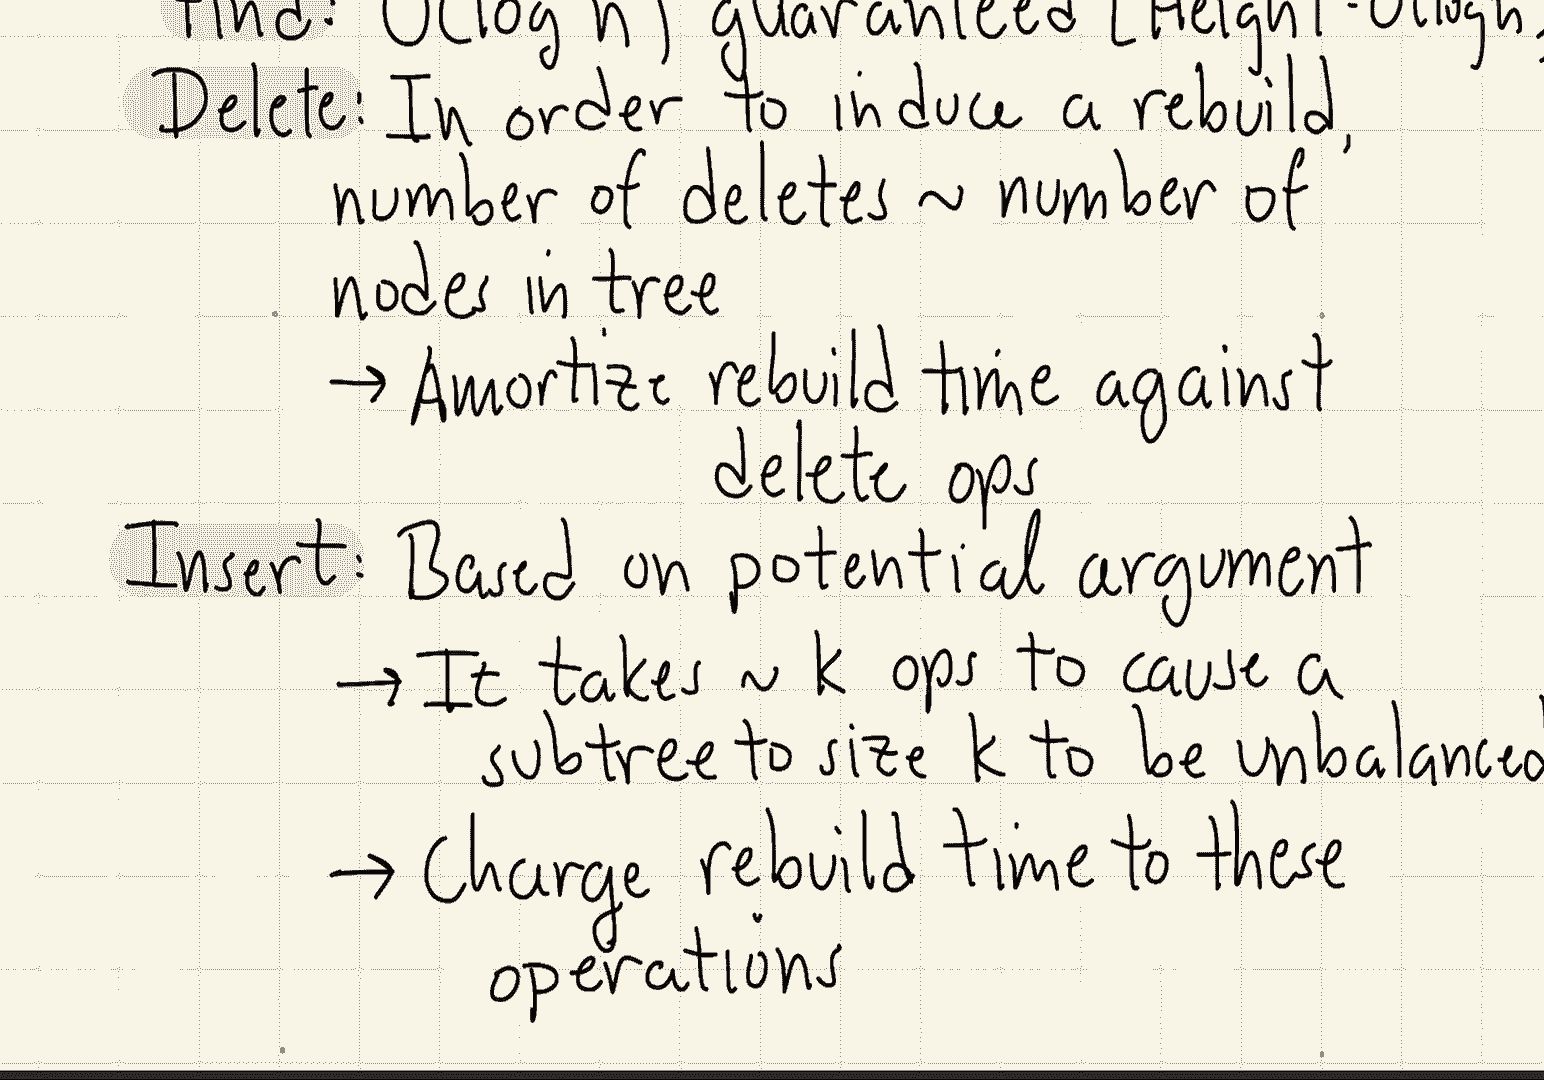 Find: O(log n) guaranteed [Height = O(log n)
Delete: In order to induce a rebuild,
number of deletes ~ number of
nodes in tree
→ Amortize rebuild time against
delete ops
Insert: Based on potential argument
→ It takes ~ k ops to cause a
subtree to size k to be unbalanced
→ Charge rebuild time to these
operations